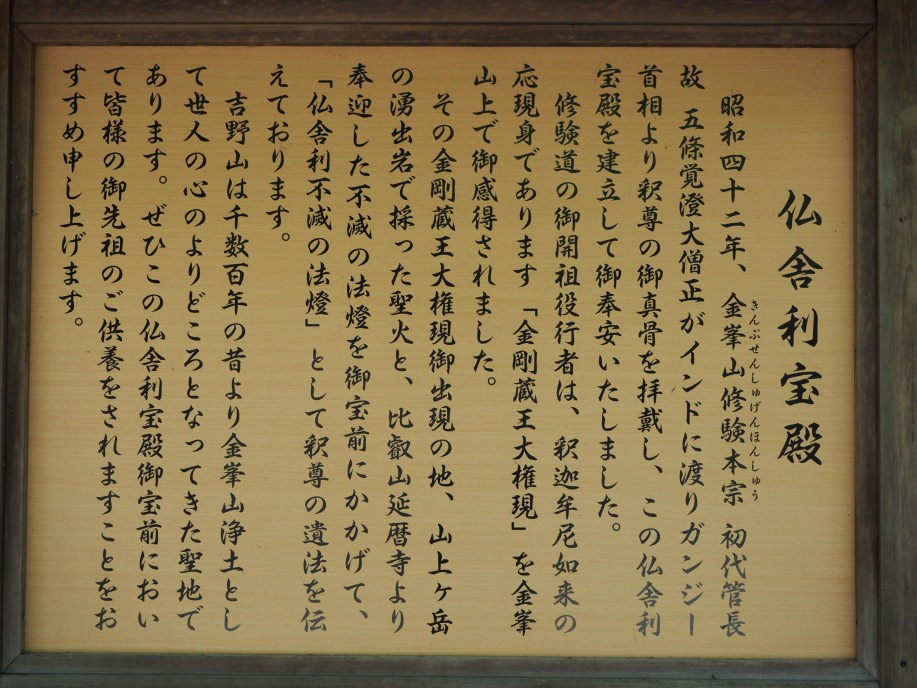 仏舎利宝殿
昭和四十二年、金峯山修験本宗 初代管長
きんぶせんしゅげんほんしゅう
故 五條覚澄大僧正がインドに渡りガンジー
首相より釈尊の御真骨を拝戴し、この仏舎利
宝殿を建立して御奉安いたしました。
修験道の御開祖役行者は、釈迦牟尼如来の
応現身であります「金剛蔵王大権現」を金峯
山上で御感得されました。
その金剛蔵王大権現御出現の地、山上ヶ岳
の湧出岩で採った聖火と、比叡山延暦寺より
奉迎した不滅の法燈を御宝前にかかげて、
「仏舎利不滅の法燈」として釈尊の遺法を伝
えております。
吉野山は千数百年の昔より金峯山浄土とし
て世人の心のよりどころとなってきた聖地で
あります。ぜひこの仏舎利宝殿御宝前におい
て皆様の御先祖のご供養をされますことをお
すすめ申し上げます。